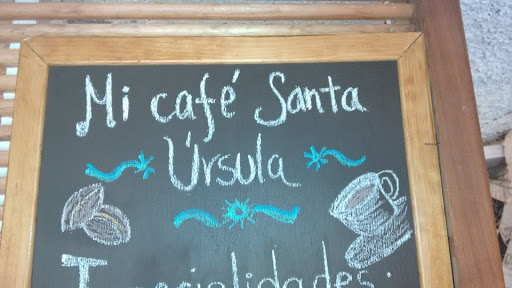 Mi café Santa
Úrsula